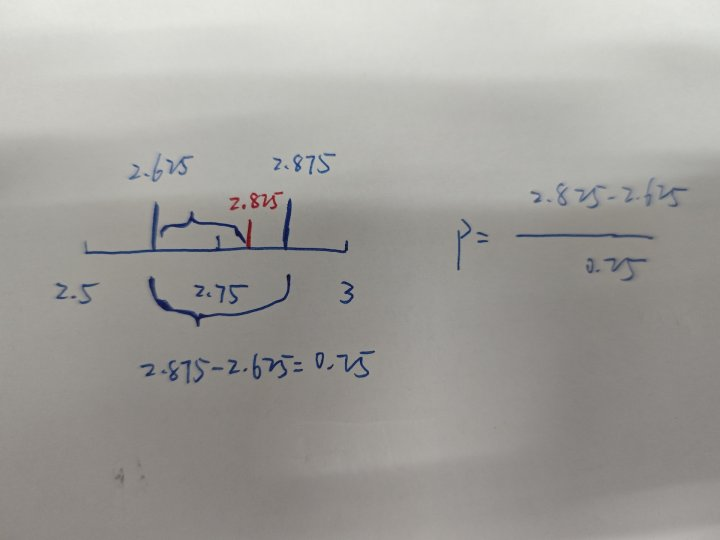 2.625 2.875
2.825
2.5 2.75 3
2.875-2.625=0.25
2.825-2.625
P=
0.25